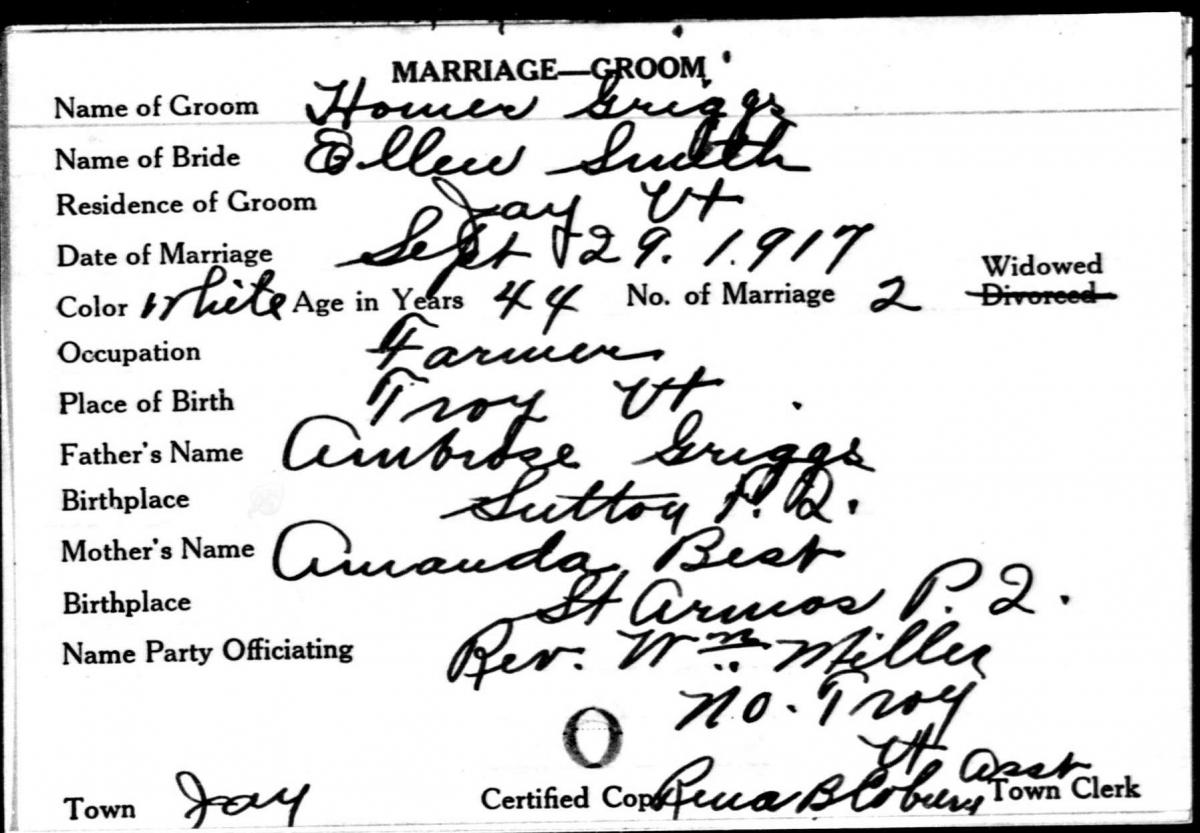 MARRIAGE—GROOM
Name of Groom Homer Griggs
Name of Bride Ellen Smith
Residence of Groom Jay Vt
Date of Marriage Sept 29. 1917
Widowed
Color White Age in Years 44 No. of Marriage 2 Divorced
Occupation Farmer
Place of Birth Troy Vt
Father's Name Ambrose Griggs
Birthplace Sutton P.Q.
Mother's Name Amanda Best
Birthplace St Armos P.Q.
Name Party Officiating Rev. Wm. Miller
No. Troy
Vt
Asst
Town Jay Certified Copy Rena B Coburn Town Clerk